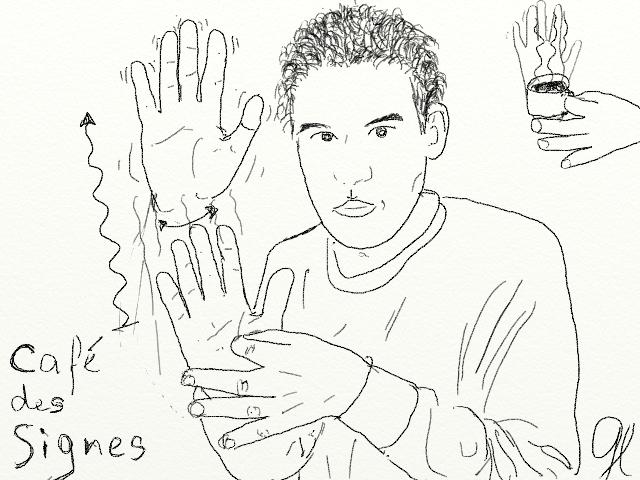 Café
des
Signes